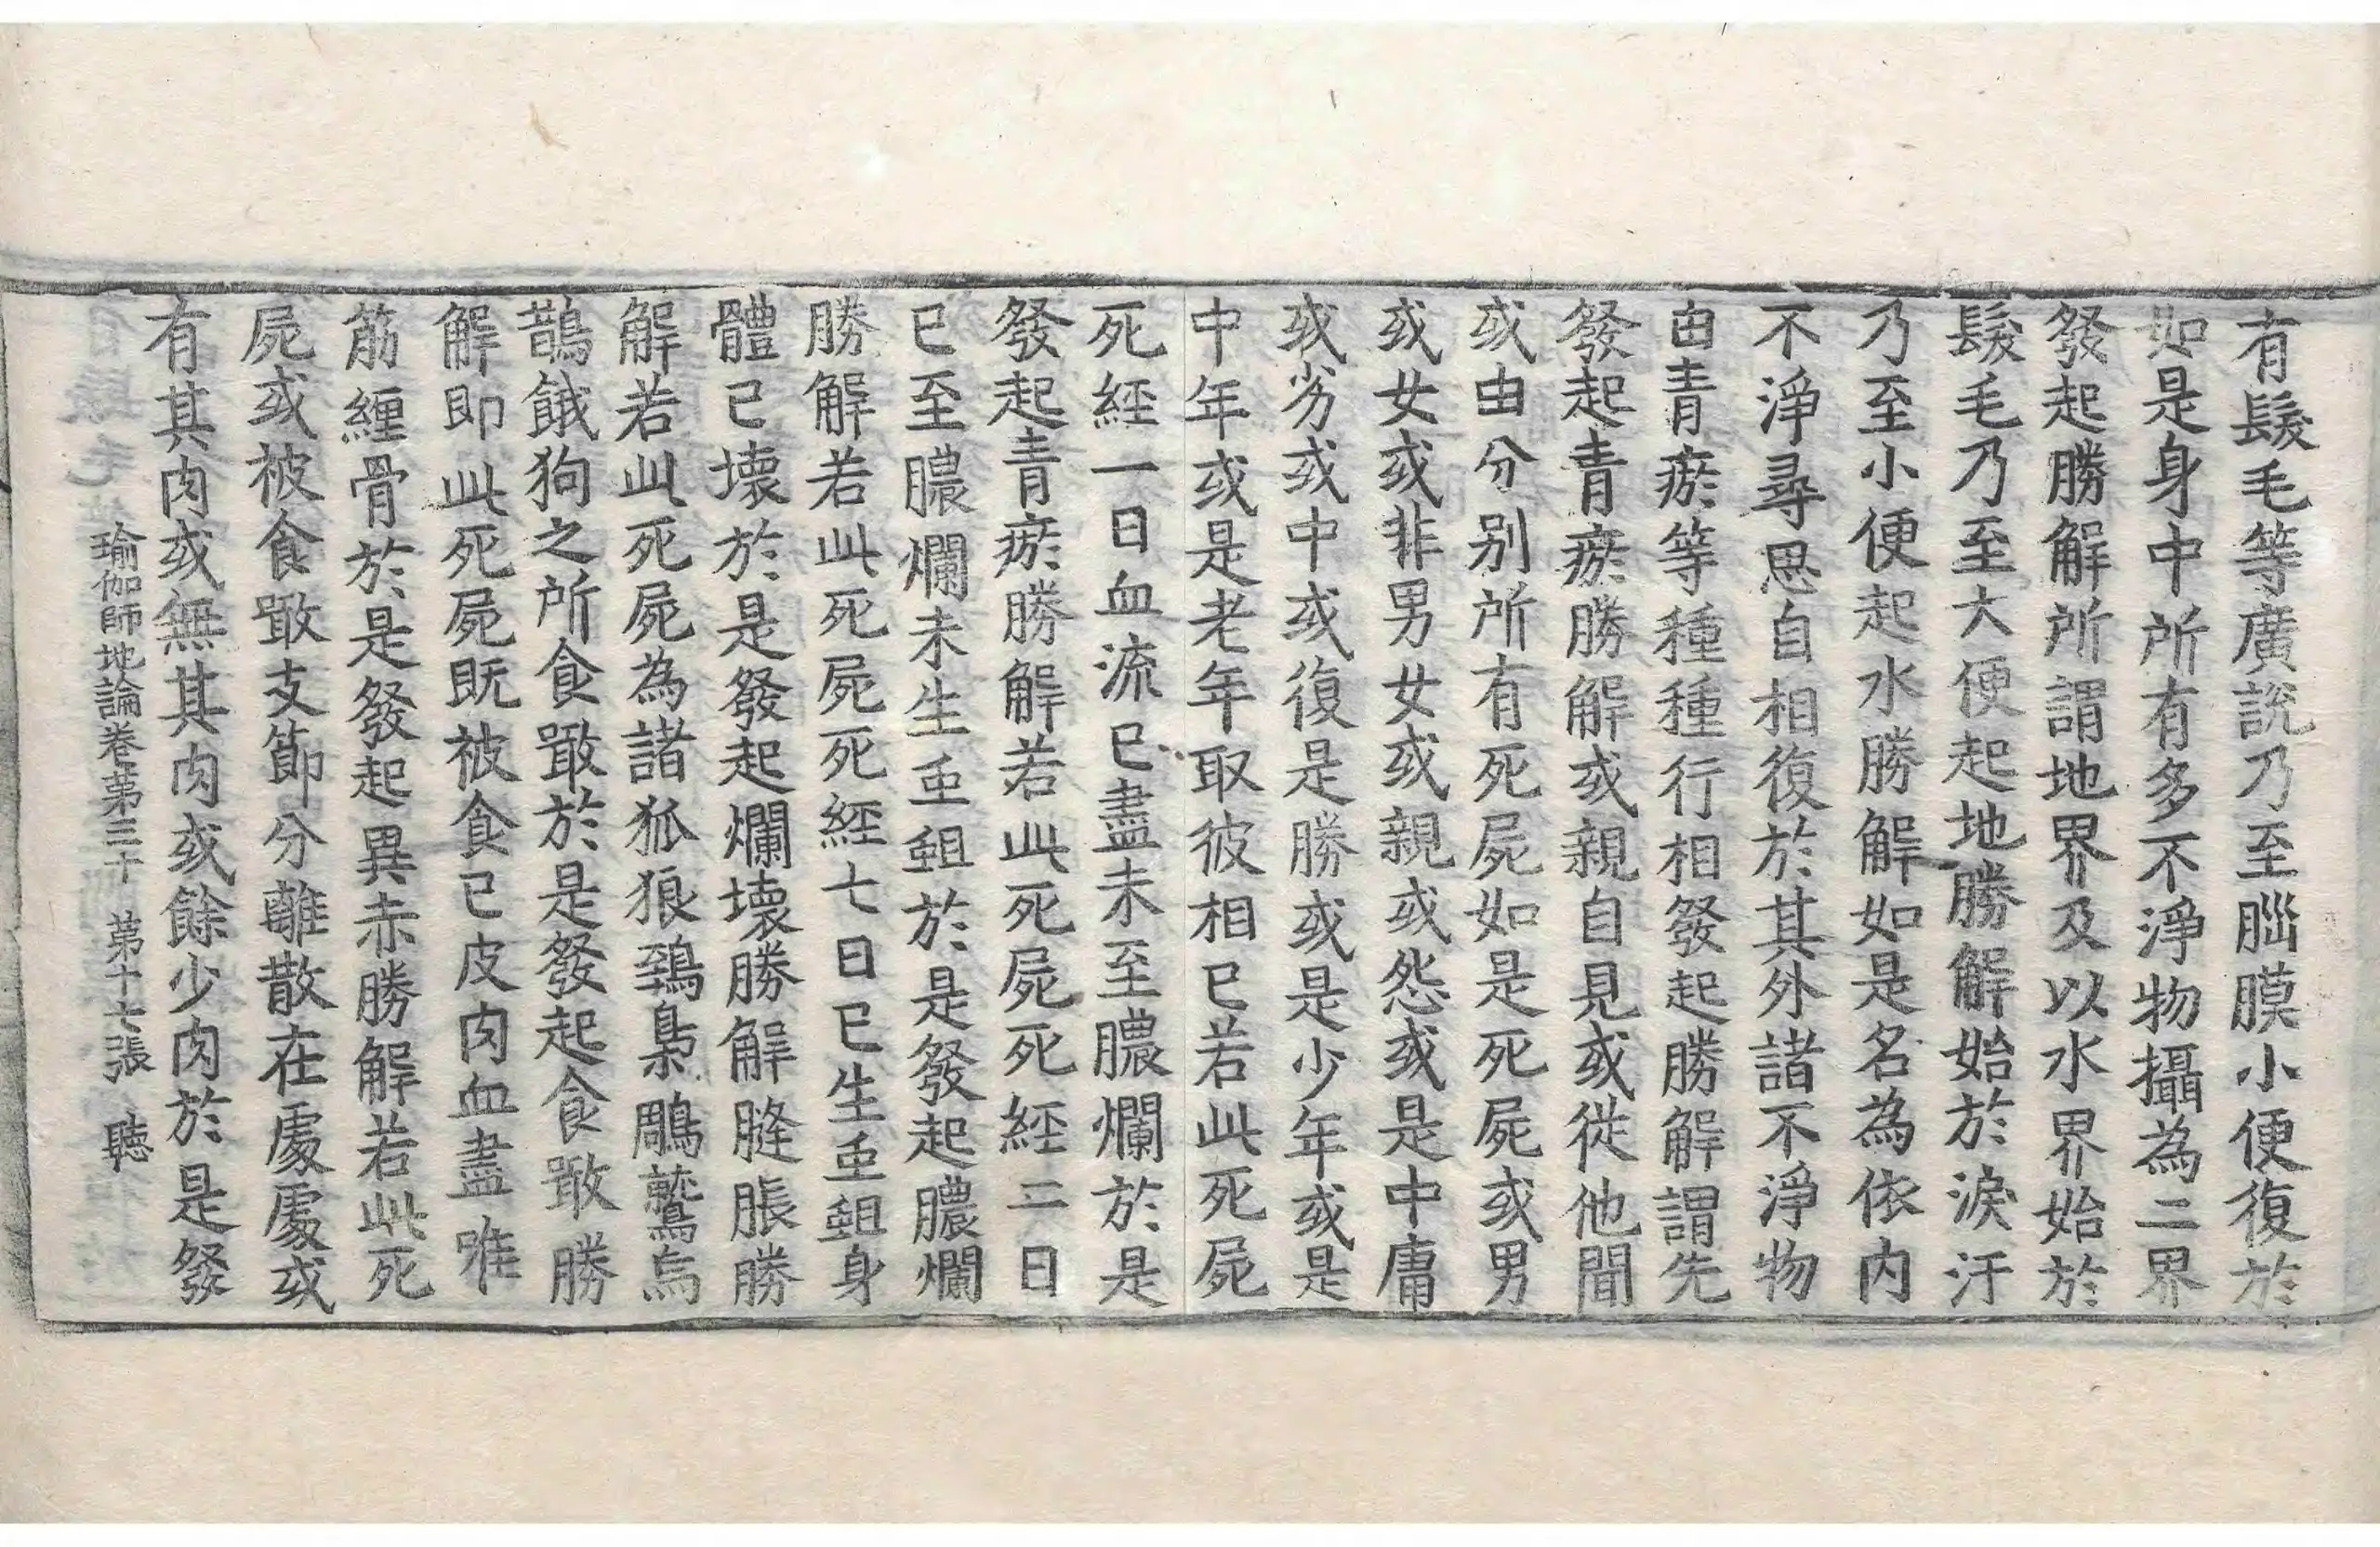 有髮毛等廣說乃至腦膜小便復於
如是身中所有多不淨物攝為二界
發起勝解所謂地界及以水界始於
髮毛乃至大便起地勝解始於淚汗
乃至小便起水勝解如是名為依內
不淨尋思自相復於其外諸不淨物
由青瘀等種種行相發起勝解謂先
發起青瘀勝解或親自見或從他聞
或由分別所有死屍如是死屍或男
或女或非男女或親或怨或是中庸
或劣或中或復是勝或是少年或是
中年或是老年取彼相已若此死屍
死經一日血流已盡未至膿爛於是
發起青瘀勝解若此死屍死經二日
已至膿爛未生䖝蛆於是發起膿爛
勝解若此死屍死經七日已生䖝蛆身
體已壞於是發起爛壞勝解膖脹勝
解若此死屍為諸狐狼鵄梟鵰鷲烏
鵲餓狗之所食噉於是發起食噉勝
解即此死屍既被食已皮肉血盡唯
筋纏骨於是發起異赤勝解若此死
屍或被食噉支節分離散在處處或
有其肉或無其肉或餘少肉於是發
瑜伽師地論卷第三十 第十七張 聽